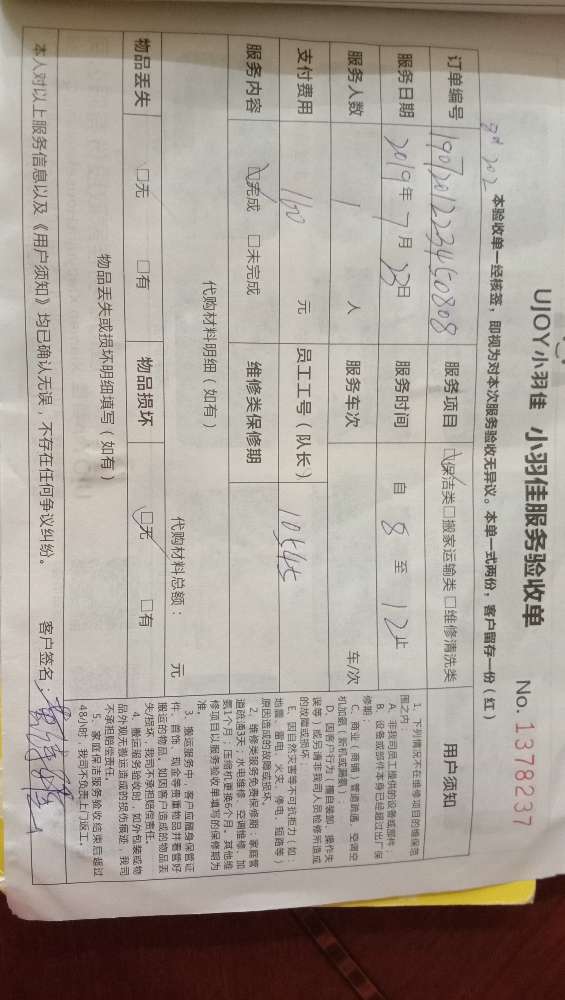 UJOY小羽佳 小羽佳服务验收单
No. 1378237
本验收单一经核签，即视为对本次服务验收无异议。本单一式两份，客户留存一份（红）
订单编号 19072012233450808 服务项目 ☑保洁类□搬家运输类 □维修清洗类
服务日期 2019年7月23日 服务时间 自 8 至 12止
服务人数 1 人 服务车次 车/次
支付费用 160 元 员工工号（队长） 10545
服务内容 ☑完成 □未完成 维修类保修期
代购材料明细（如有） 代购材料总额： 元
物品丢失 □无 □有 物品损坏 ☑无 □有
物品丢失或损坏明细填写（如有）
本人对以上服务信息以及《用户须知》均已确认无误，不存在任何争议纠纷。 客户签名：
用户须知
1、下列情况不在维修项目的维保范
围之内：
A、非我司员工提供的设备或部件；
B、设备或部件本身已经超过出厂保
修期；
C、商业（商铺）管道疏通、空调空
机加氨（新机或漏氨）；
D、因客户行为（擅自装卸、操作失
误等）或另请非我司人员检修所造成
的故障或损坏；
E、因自然灾害等不可抗拒力（如：
地震、雷电、火灾、停电、短路等）
原因造成的故障或损坏。
2、维修类服务免费保修期：家庭管
道疏通3天；水电维修、空调维修、加
氨1个月；压缩机更换6个月。其他维
修项目以服务验收单填写的保修期为
准。
3、搬运服务中，客户应随身保管证
件、首饰、现金等贵重物品并看管好
搬运的物品。如因客户造成的物品丢
失/损坏，我司不承担赔偿责任。
4、搬运服务验收时，如外包装或物
品外观无搬运造成的损伤痕迹，我司
不承担赔偿责任。
5、家庭保洁服务验收结束后超过
48小时，我司不负责上门返工。